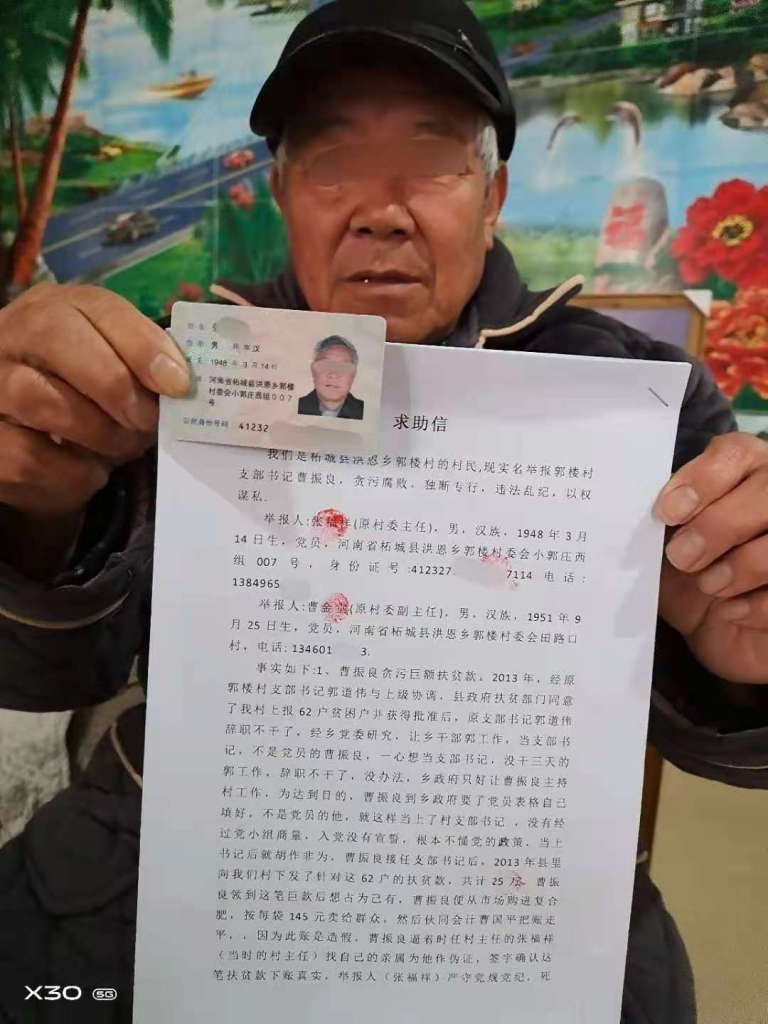 姓名
性别 男 民族 汉
出生 1948 年 3 月 14 日
住址 河南省柘城县洪恩乡郭楼
村委会小郭庄西组007
号
公民身份号码 41232
求助信
我们是柘城县洪恩乡郭楼村的村民,现实名举报郭楼村
支部书记曹振良，贪污腐败，独断专行，违法乱纪，以权
谋私.
举报人:张福祥(原村委主任)，男，汉族，1948 年 3 月
14 日生，党员，河南省柘城县洪恩乡郭楼村委会小郭庄西
组 007 号，身份证号:412327. 7114 电话：
1384965
举报人:曹金 (原村委副主任)，男，汉族，1951 年 9
月 25 日生，党员，河南省柘城县洪恩乡郭楼村委会田路口
村，电话: 134601 3.
事实如下:1、曹振良贪污巨额扶贫款。2013 年，经原
郭楼村支部书记郭道伟与上级协调，县政府扶贫部门同意
了我村上报 62 户贫困户并获得批准后，原支部书记郭道伟
辞职不干了，经乡党委研究，让乡干部郭工作，当支部书
记，不是党员的曹振良，一心想当支部书记，没干三天的
郭工作，辞职不干了，没办法，乡政府只好让曹振良主持
村工作，为达到目的，曹振良到乡政府要了党员表格自己
填好，不是党员的他，就这样当上了村支部书记 ，没有经
过党小组商量，入党没有宣誓，根本不懂党的政策，当上
书记后就胡作非为，曹振良接任支部书记后，2013 年县里
向我们村下发了针对这 62 户的扶贫款，共计 25 万，曹振
良领到这笔巨款后想占为己有，曹振良便从市场购进复合
肥，按每袋 145 元卖给群众，然后伙同会计曹国平把账走
平，，因为此账是造假，曹振良逼着时任村主任的张福祥
（当时的村主任）找自己的亲属为他作伪证，签字确认这
笔扶贫款下账真实，举报人（张福祥）严守党规党纪，死
X30 5G